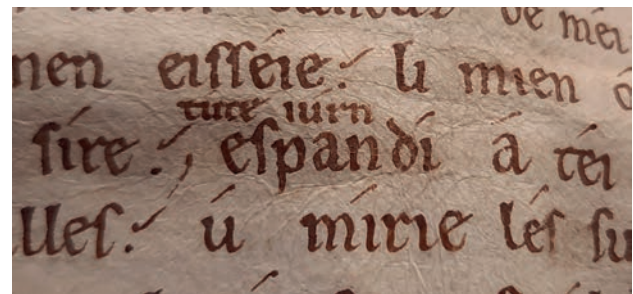 de méi
nen eiſſéie: li mien
tute iurn
ſire: eſpandi á téi
lleſ: ú mírie léſ ſu